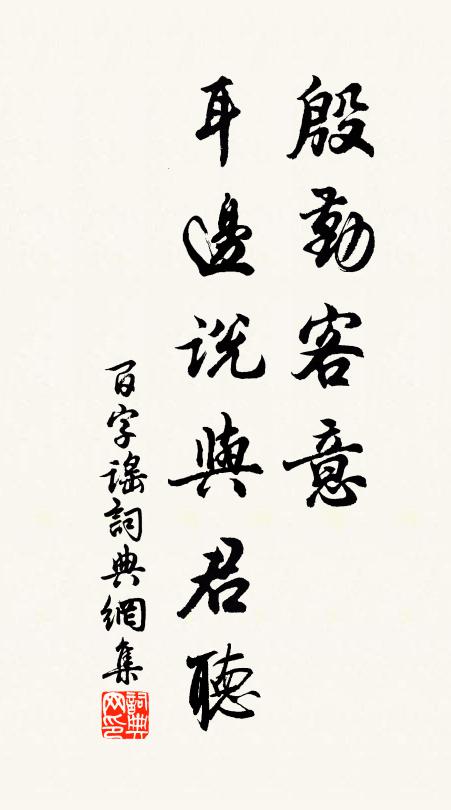 殷勤客意
耳邊説與君聽
百字謠詞典網集
詞典网印